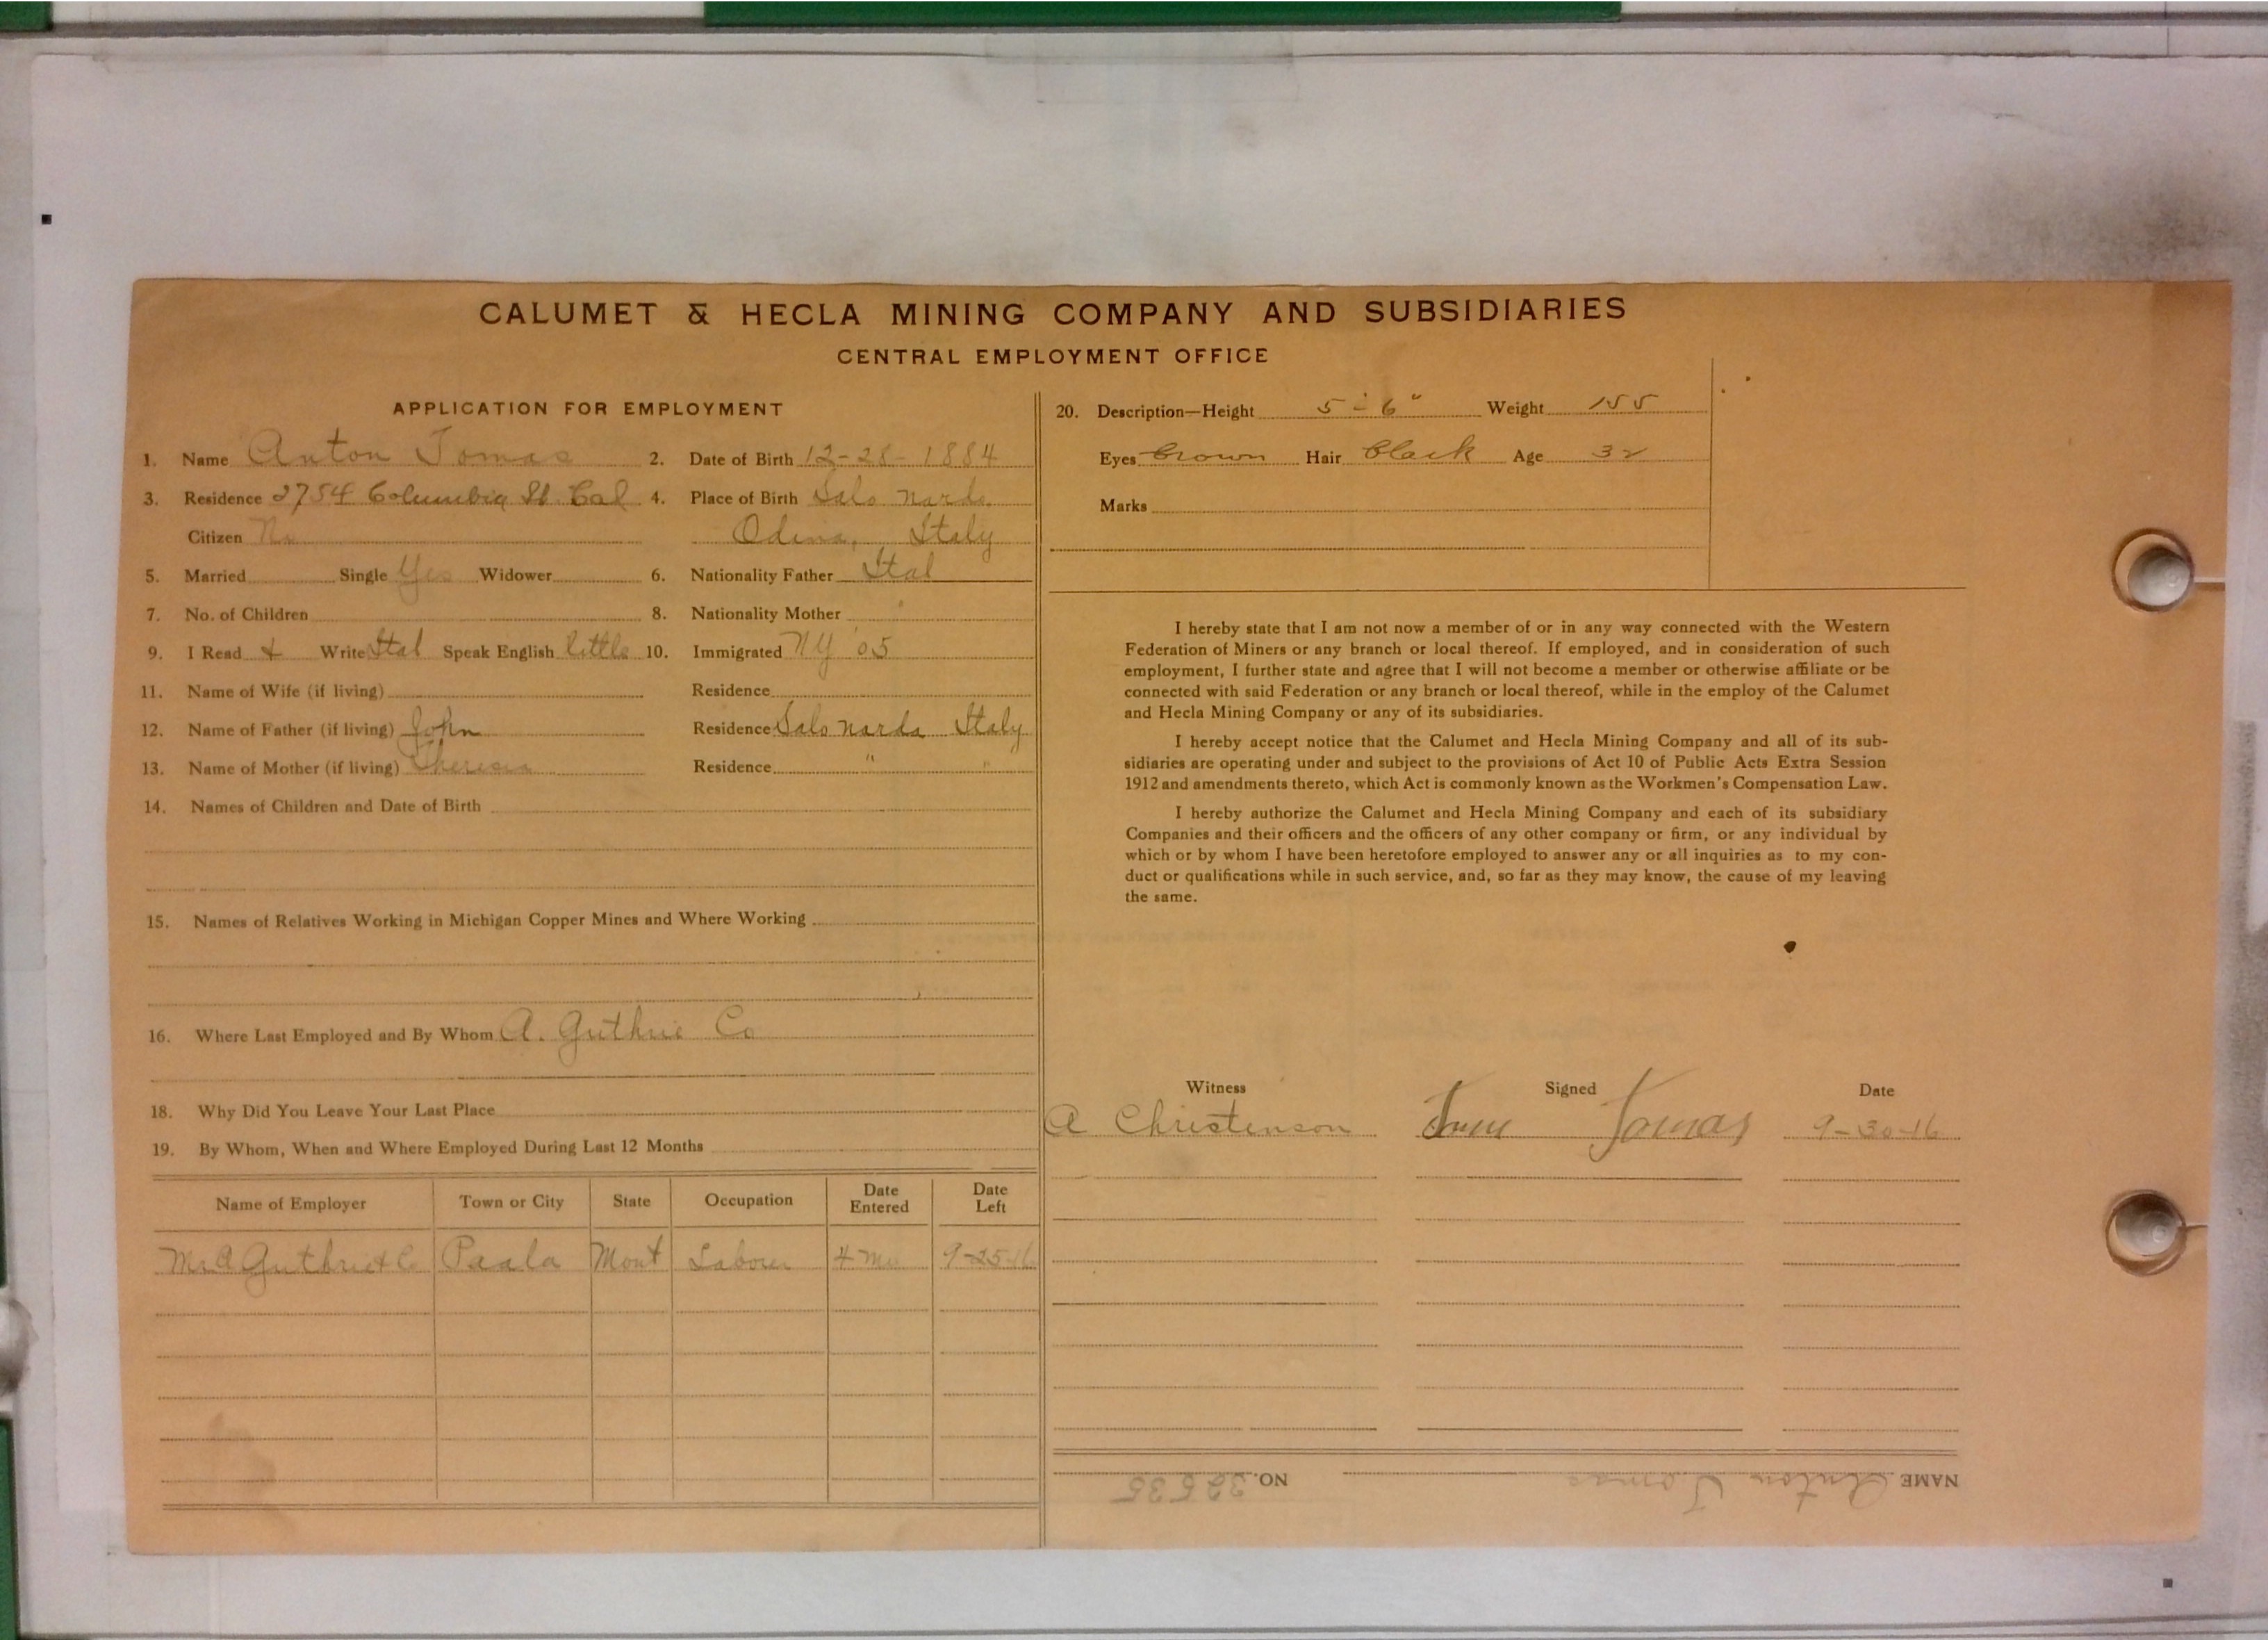 CALUMET & HECLA MINING COMPANY AND SUBSIDIARIES
CENTRAL EMPLOYMENT OFFICE
APPLICATION FOR EMPLOYMENT
1. Name Anton Tomas 2. Date of Birth 12-28-1884
3. Residence 2754 Columbia St. Cal 4. Place of Birth Salo Narda
Citizen No Odina, Italy
5. Married Single Yes Widower 6. Nationality Father Ital
7. No. of Children 8. Nationality Mother "
9. I Read & Write Ital Speak English little 10. Immigrated NY '05
11. Name of Wife (if living) Residence
12. Name of Father (if living) John Residence Salo Narda Italy
13. Name of Mother (if living) Theresia Residence " "
14. Names of Children and Date of Birth
15. Names of Relatives Working in Michigan Copper Mines and Where Working
16. Where Last Employed and By Whom A. Guthrie Co
18. Why Did You Leave Your Last Place
19. By Whom, When and Where Employed During Last 12 Months
Name of Employer Town or City State Occupation Date Entered Date Left
A Guthrie & Co Paala Mont Laborer 4 Mo 9-25-16
20. Description—Height 5-6" Weight 155
Eyes Brown Hair Black Age 32
Marks
I hereby state that I am not now a member of or in any way connected with the Western
Federation of Miners or any branch or local thereof. If employed, and in consideration of such
employment, I further state and agree that I will not become a member or otherwise affiliate or be
connected with said Federation or any branch or local thereof, while in the employ of the Calumet
and Hecla Mining Company or any of its subsidiaries.
I hereby accept notice that the Calumet and Hecla Mining Company and all of its sub-
sidiaries are operating under and subject to the provisions of Act 10 of Public Acts Extra Session
1912 and amendments thereto, which Act is commonly known as the Workmen's Compensation Law.
I hereby authorize the Calumet and Hecla Mining Company and each of its subsidiary
Companies and their officers and the officers of any other company or firm, or any individual by
which or by whom I have been heretofore employed to answer any or all inquiries as to my con-
duct or qualifications while in such service, and, so far as they may know, the cause of my leaving
the same.
Witness Signed Date
A Christenson Tomas 9-30-16
NAME Anton Tomas NO. 32535